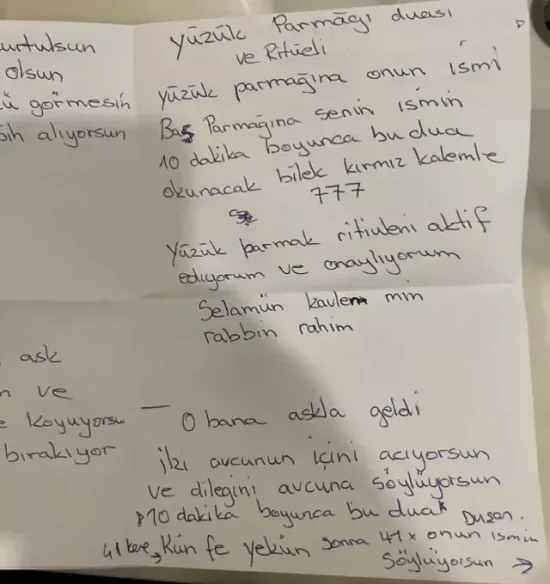 urtulsun
olsun
ü görmesin
ih alıyorsun
yüzük Parmağı duası
ve Ritüeli
yüzük parmağına onun ismi
Baş Parmağına senin ismin
10 dakika boyunca bu dua
okunacak bilek kırmız kalemle
777
yüzük parmak ritiuleni aktif
ediyorum ve onaylıyorum
Selamün kavlem min
rabbin rahim
ask
n ve
e koyuyorsu
bırakıyor
— O bana askla geldi
iki avcunun içini acıyorsun
ve dileğini avcuna söylüyorsun
10 dakika boyunca bu dua
41 kere, Kün fe yekün sonra 41x onun ismin
Söylüyorsun →